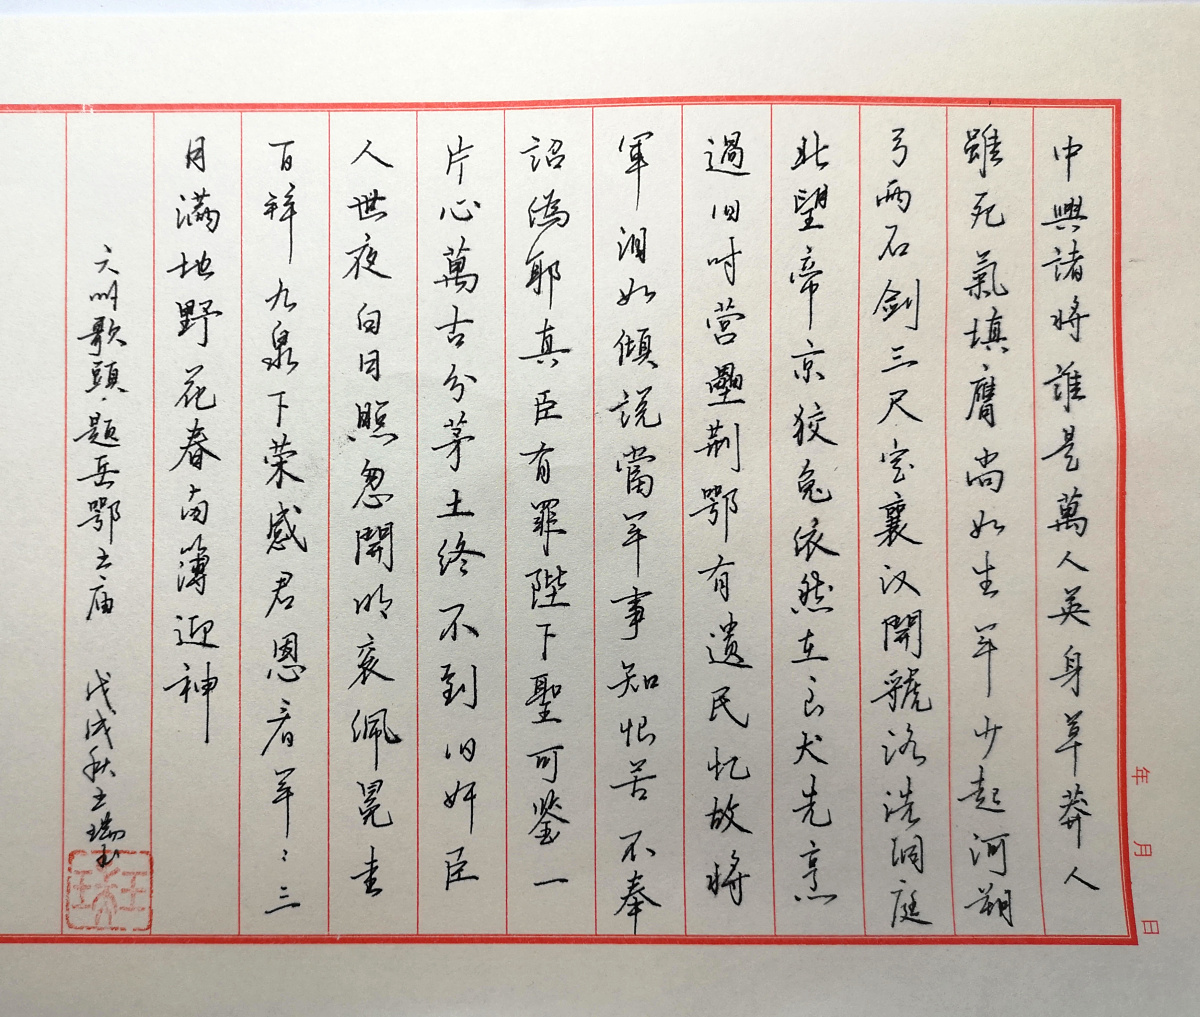 中興諸將誰是萬人英身草莽人
雖死氣填膺尚如生年少起河朔
弓兩石劍三尺定襄汉開虢洛洗洞庭
北望帝京狡兔依然在良犬先烹
過旧时營壘荆鄂有遺民忆故將
軍泪如傾説當年事知恨苦不奉
詔偽耶真臣有罪陛下聖可鑒一
片心萬古分茅土終不到旧奸臣
人世夜白日照忽開明衮佩冕圭
百拜九泉下荣感君恩看年〻三
月滿地野花春卤簿迎神
六州歌頭·題岳鄂王庙 戊戌秋王瑞
年 月 日